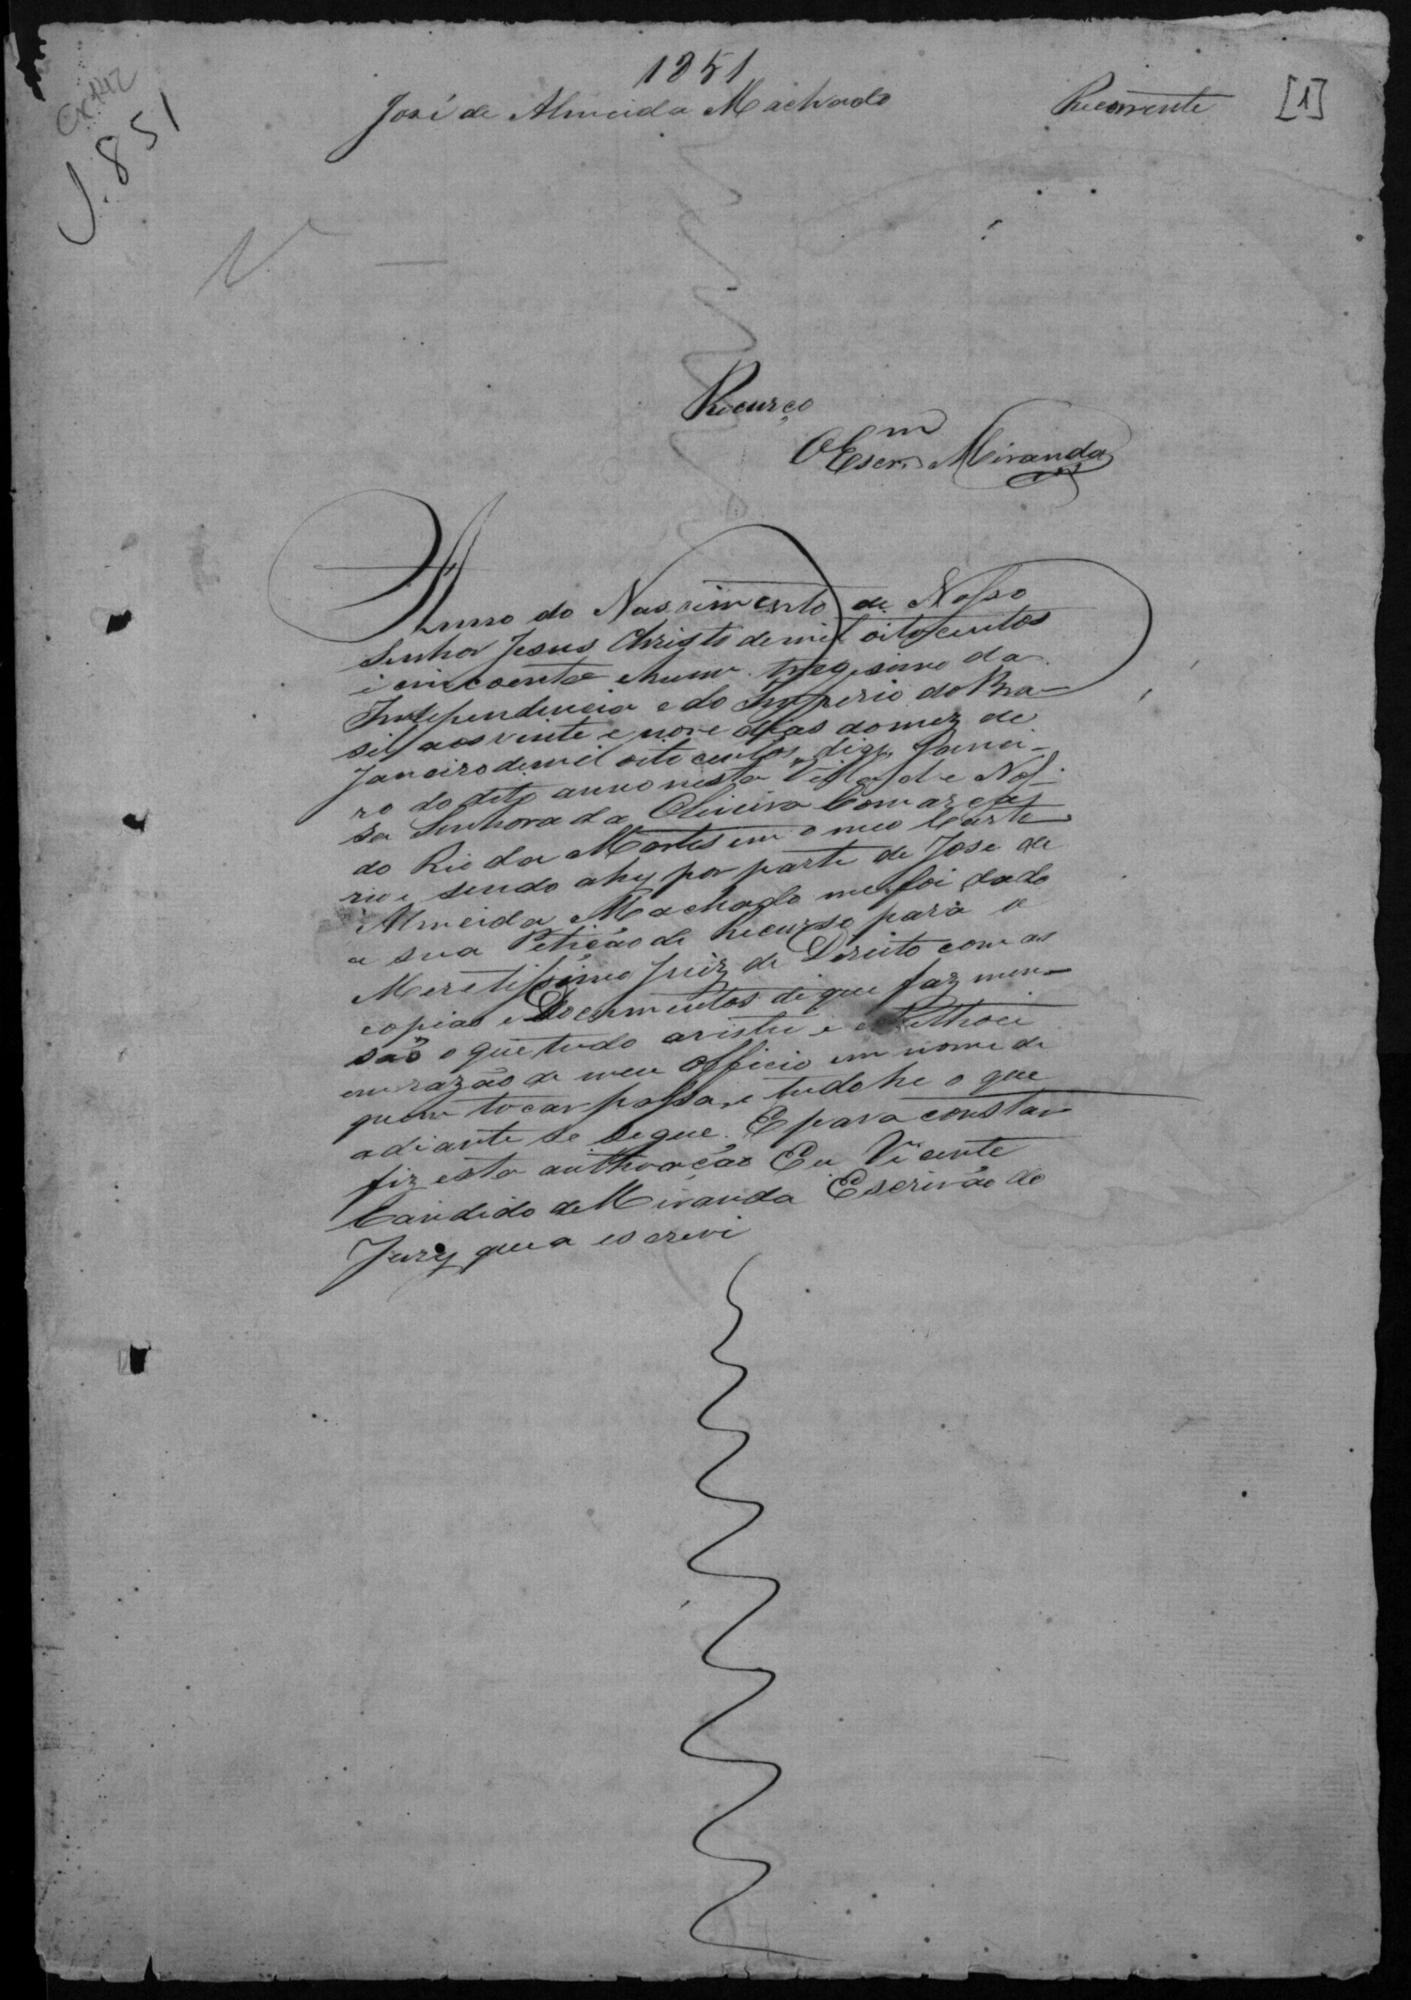 1851
José de Almeida Machado Recorrente [1]
J. 851
Recurço
O Escr.m Miranda
Anno do Nascimento de Nosso
Senhor Jesus Christo de mil oitocentos
e cincoenta e hum trigesimo da
Independencia e do Imperio do Bra-
sil aos vinte e nove dias do mez de
Janeiro de mil oito centos, digo, Janei-
ro do dito anno nesta Villa de Nos-
sa Senhora da Oliveira Comarca
do Rio das Mortes em o meo Carto
rio e sendo ahy por parte de Jose de
Almeida Machado me foi dado
a sua Petição de Recurso para o
Meretissimo Juiz de Direito com as
copias e Documentos de que faz men-
são o que tudo aceitei e authoei
em razão de meu Officio em nome de
quem tocar possa, e tudo he o que
adiante se segue. E para constar
fiz esta authoação Eu Vicente
Candido de Miranda Escrivão do
Jury que a escrevi